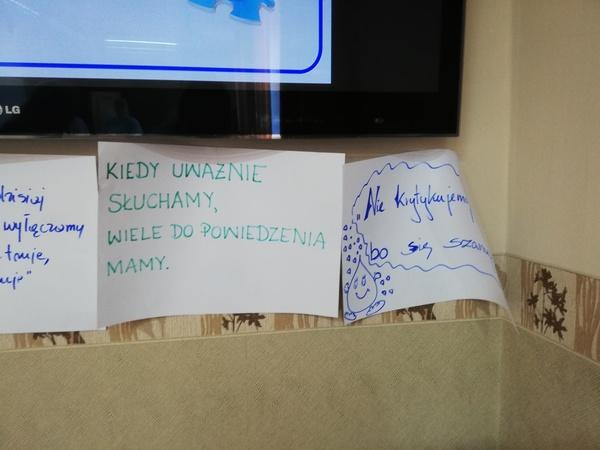 LG
dzisiaj
wyłączamy
KIEDY UWAŻNIE
SŁUCHAMY,
WIELE DO POWIEDZENIA
MAMY.
"Nie krytykujemy
bo się